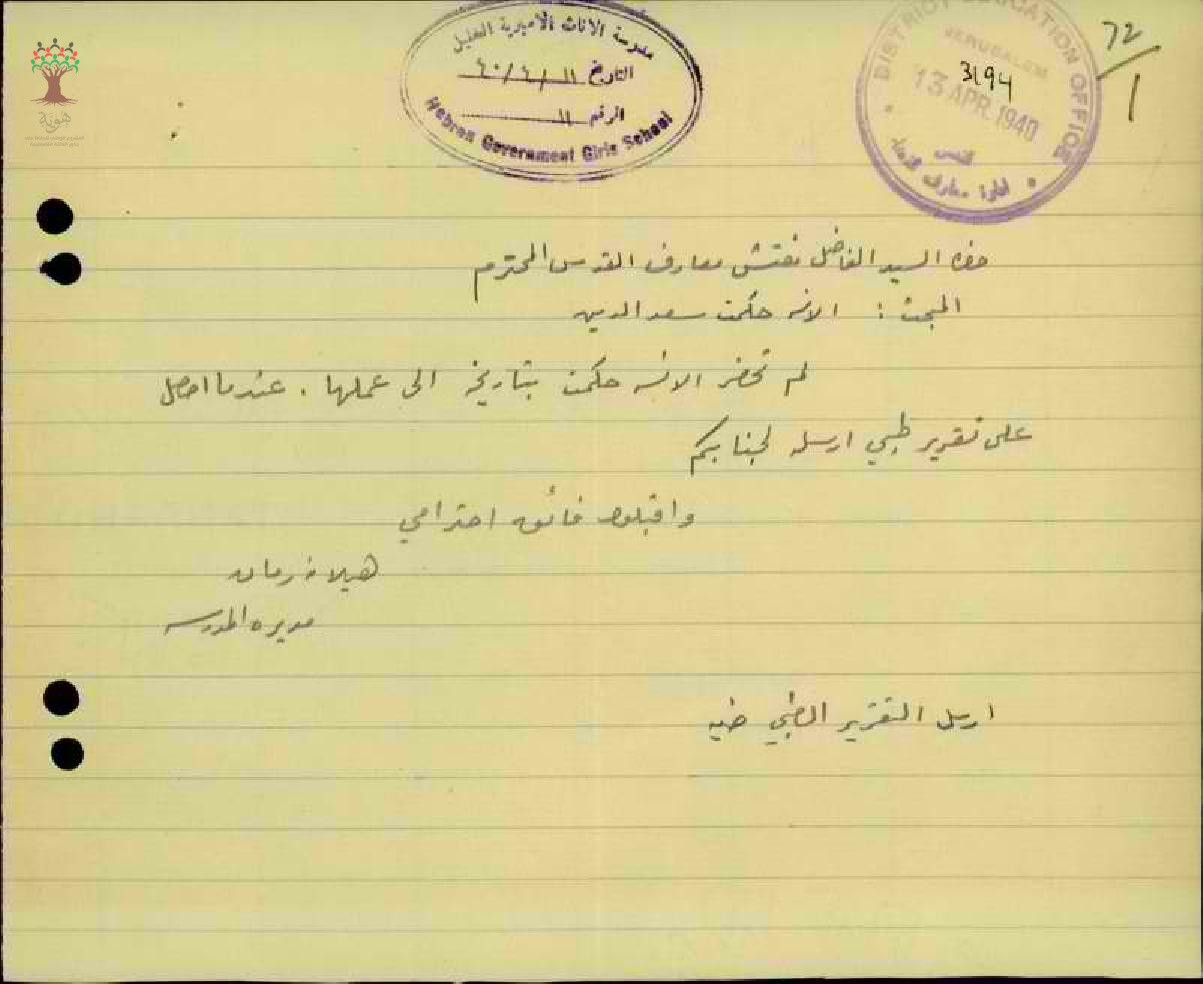 مدرسة الاناث الاميرية الخليل
التاريخ ١١/٤/٤٠
الرقم ١١
Hebron Government Girls School
DISTRICT EDUCATION OFFICE
JERUSALEM
3194
13 APR 1940
القدس
ادارة معارف
72
1
هوية
حضرة السيد الفاضل مفتش معارف القدس المحترم
المبحث : الانسه حكمت سعد الدين
لم تحضر الانسه حكمت بتاريخه الى عملها . عندما احصل
على تقرير طبي ارسله لجنابكم
واقبلوا فائق احترامي
هيلانة رمان
مديرة المدرسه
ارسل التقرير الطبي طيه